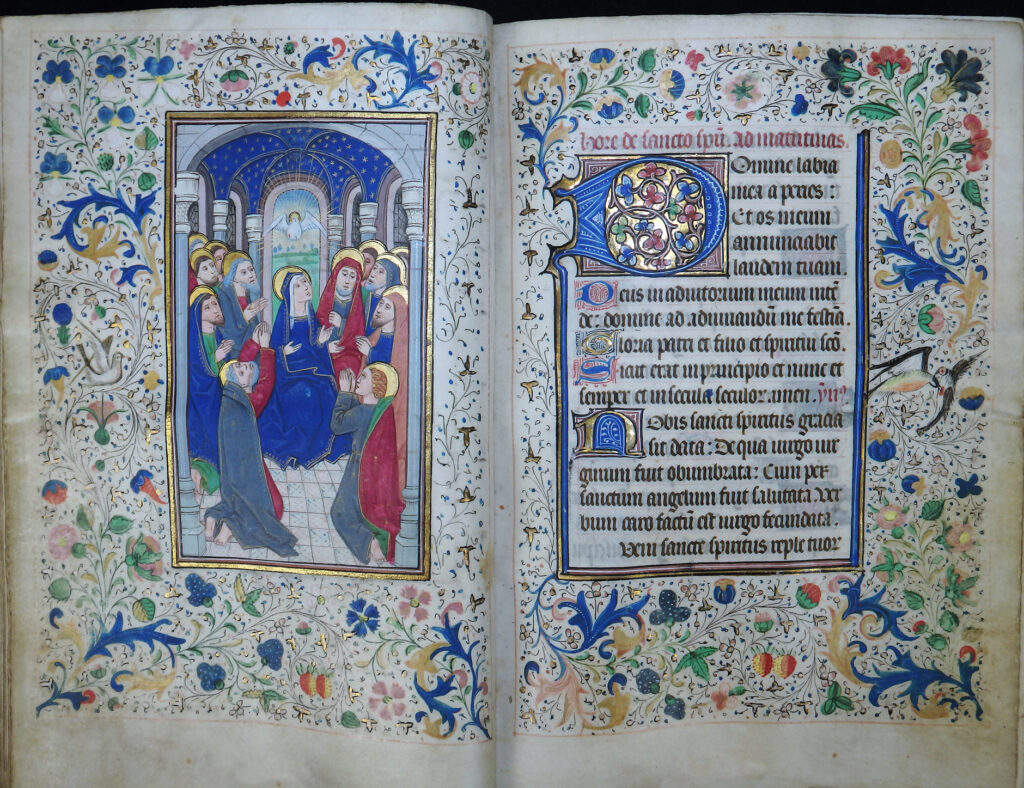 Hore de sancto spũ. ad matutinas.
Domine labia
mea aperies :
Et os meum
annunciabit
laudem tuam.
Deus in adiutorium meum intẽ
de: domine ad adiuuandũ me festina.
Gloria patri et filio et spiritui scõ
Sicut erat in principio et nunc et
semper et in secula seculor. amen. ymꝰ
Nobis sancti spiritus gracia
sit data: De qua uirgo uir
ginum fuit obumbrata: Cum per
sanctum angelum fuit salutata. Ver
bum caro factũ est uirgo fecundata.
Veni sancte spiritus reple tuor